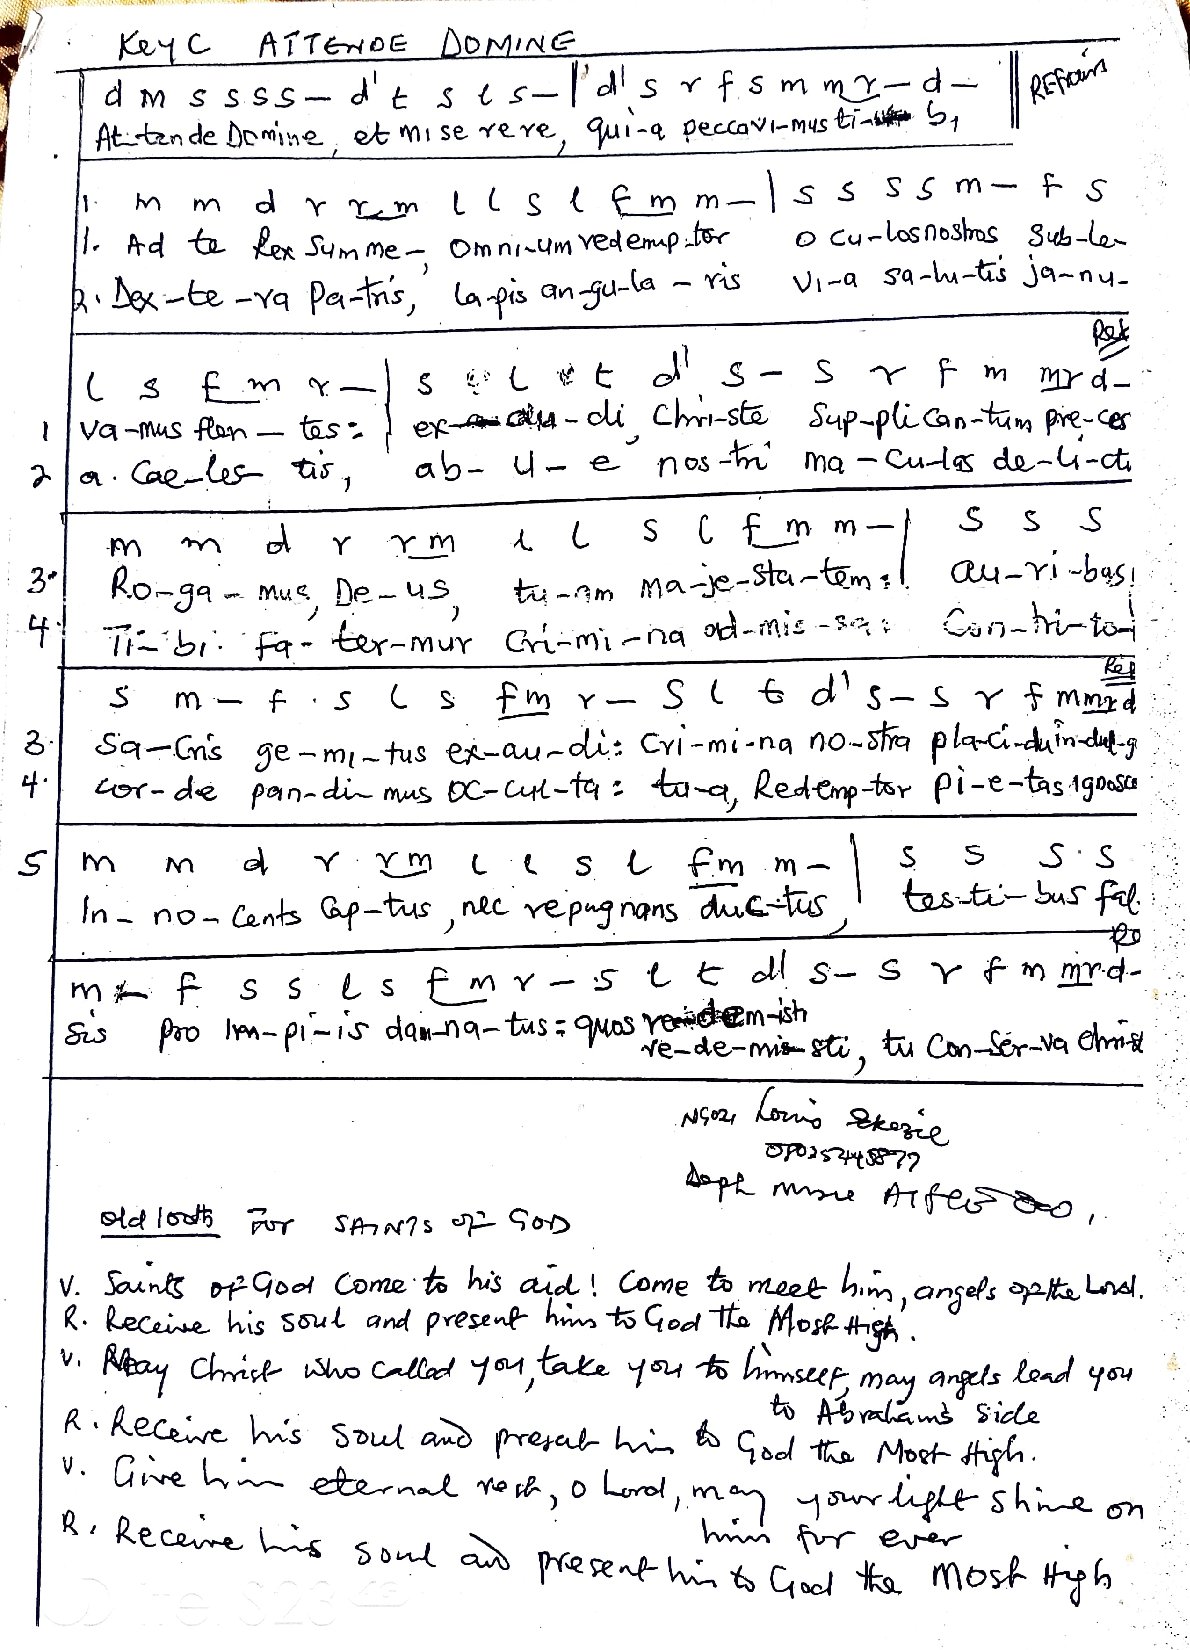 Key C ATTENDE DOMINE
d m s s s s s – d' t s l s – | 'd' s r f s m m r – d – REFrain
At-tende Domine, et mi se re re, qui-a peccavi-mus ti- b,
1. m m d r r m l l s l f m m – | s s s s m – f s
1. Ad te Rex Summe –, Omni-um redemp-tor o cu-los nostros Sub-le-
2. Dex-te-ra Pa-tris, la-pis an-gu-la-ris Vi-a sa-lu-tis ja-nu-
Ref
l s f m r – | s l t d' s – s r f m mr d –
1 va-mus flen-tes: ex-au-di, Chri-ste Sup-pli can-tum pre-ces
2 a. Cae-les-tis, ab-u-e nos-tri ma-cu-las de-li-cti
m m d r r m l l s l f m m – | s s s
3. Ro-ga-mus, De-us, tu-am ma-je-sta-tem: au-ri-bus
4. Ti-bi fa-ter-mur Cri-mi-na ad-mis-sa: Con-tri-to
Ref
s m – f . s l s fm r – s l t d' s – s r f m mrd
3. Sa-Cris ge-mi-tus ex-au-di: Cri-mi-na no-stra pla-ci-du in-dul-g
4. cor-de pan-di-mus OC-cul-ta: tu-a, Redemp-tor pi-e-tas ignosca
5 m m d r r m l l s l f m m – | s s s . s
In-no-cents Cap-tus, nec repugnans duc-tus, tes-ti-bus fal.
m – f s s l s f m r – s l t d' s – s r f m mr.d –
sis pro Im-pi-is dam-na-tus: quos
re-de-mi-sti, tu Con-ser-va Christ
Ngozi Louis Ekezie
Old 100th For SAINTS OF GOD
V. Saints of God Come to his aid! Come to meet him, angels of the Lord.
R. Receive his soul and present him to God the Most High.
V. May Christ who called you, take you to himself, may angels lead you
to Abraham's side
R. Receive his soul and present him to God the Most High.
V. Give him eternal rest, o Lord, may your light shine on
him for ever
R. Receive his soul and present him to God the Most High